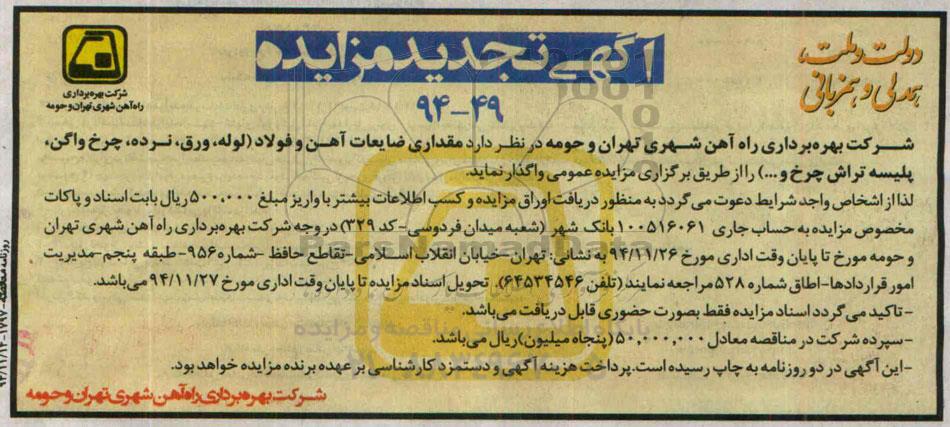 دولت و ملت،
همدلی و همزبانی
آگهی تجدید مزایده
۹۴-۴۹
شرکت بهره‌برداری
راه‌آهن شهری تهران و حومه
شرکت بهره‌برداری راه آهن شهری تهران و حومه در نظر دارد مقداری ضایعات آهن و فولاد (لوله، ورق، نرده، چرخ واگن،
پلیسه تراش چرخ و...) را از طریق برگزاری مزایده عمومی واگذار نماید.
لذا از اشخاص واجد شرایط دعوت می‌گردد به منظور دریافت اوراق مزایده و کسب اطلاعات بیشتر با واریز مبلغ ۵۰۰,۰۰۰ ریال بابت اسناد و پاکات
مخصوص مزایده به حساب جاری ۱۰۰۵۱۶۰۶۱ بانک شهر (شعبه میدان فردوسی- کد ۳۲۹) در وجه شرکت بهره‌برداری راه آهن شهری تهران
و حومه مورخ تا پایان وقت اداری مورخ ۹۴/۱۱/۲۶ به نشانی: تهران-خیابان انقلاب اسلامی-تقاطع حافظ -شماره ۹۵۶- طبقه پنجم-مدیریت
امور قراردادها-اطاق شماره ۵۲۸ مراجعه نمایند (تلفن ۶۴۵۳۴۵۴۶). تحویل اسناد مزایده تا پایان وقت اداری مورخ ۹۴/۱۱/۲۷ می‌باشد.
- تاکید می‌گردد اسناد مزایده فقط بصورت حضوری قابل دریافت می‌باشد.
-سپرده شرکت در مناقصه معادل ۵۰,۰۰۰,۰۰۰ (پنجاه میلیون) ریال می‌باشد.
-این آگهی در دو روزنامه به چاپ رسیده است. پرداخت هزینه آگهی و دستمزد کارشناسی بر عهده برنده مزایده خواهد بود.
شرکت بهره‌برداری راه‌آهن شهری تهران و حومه